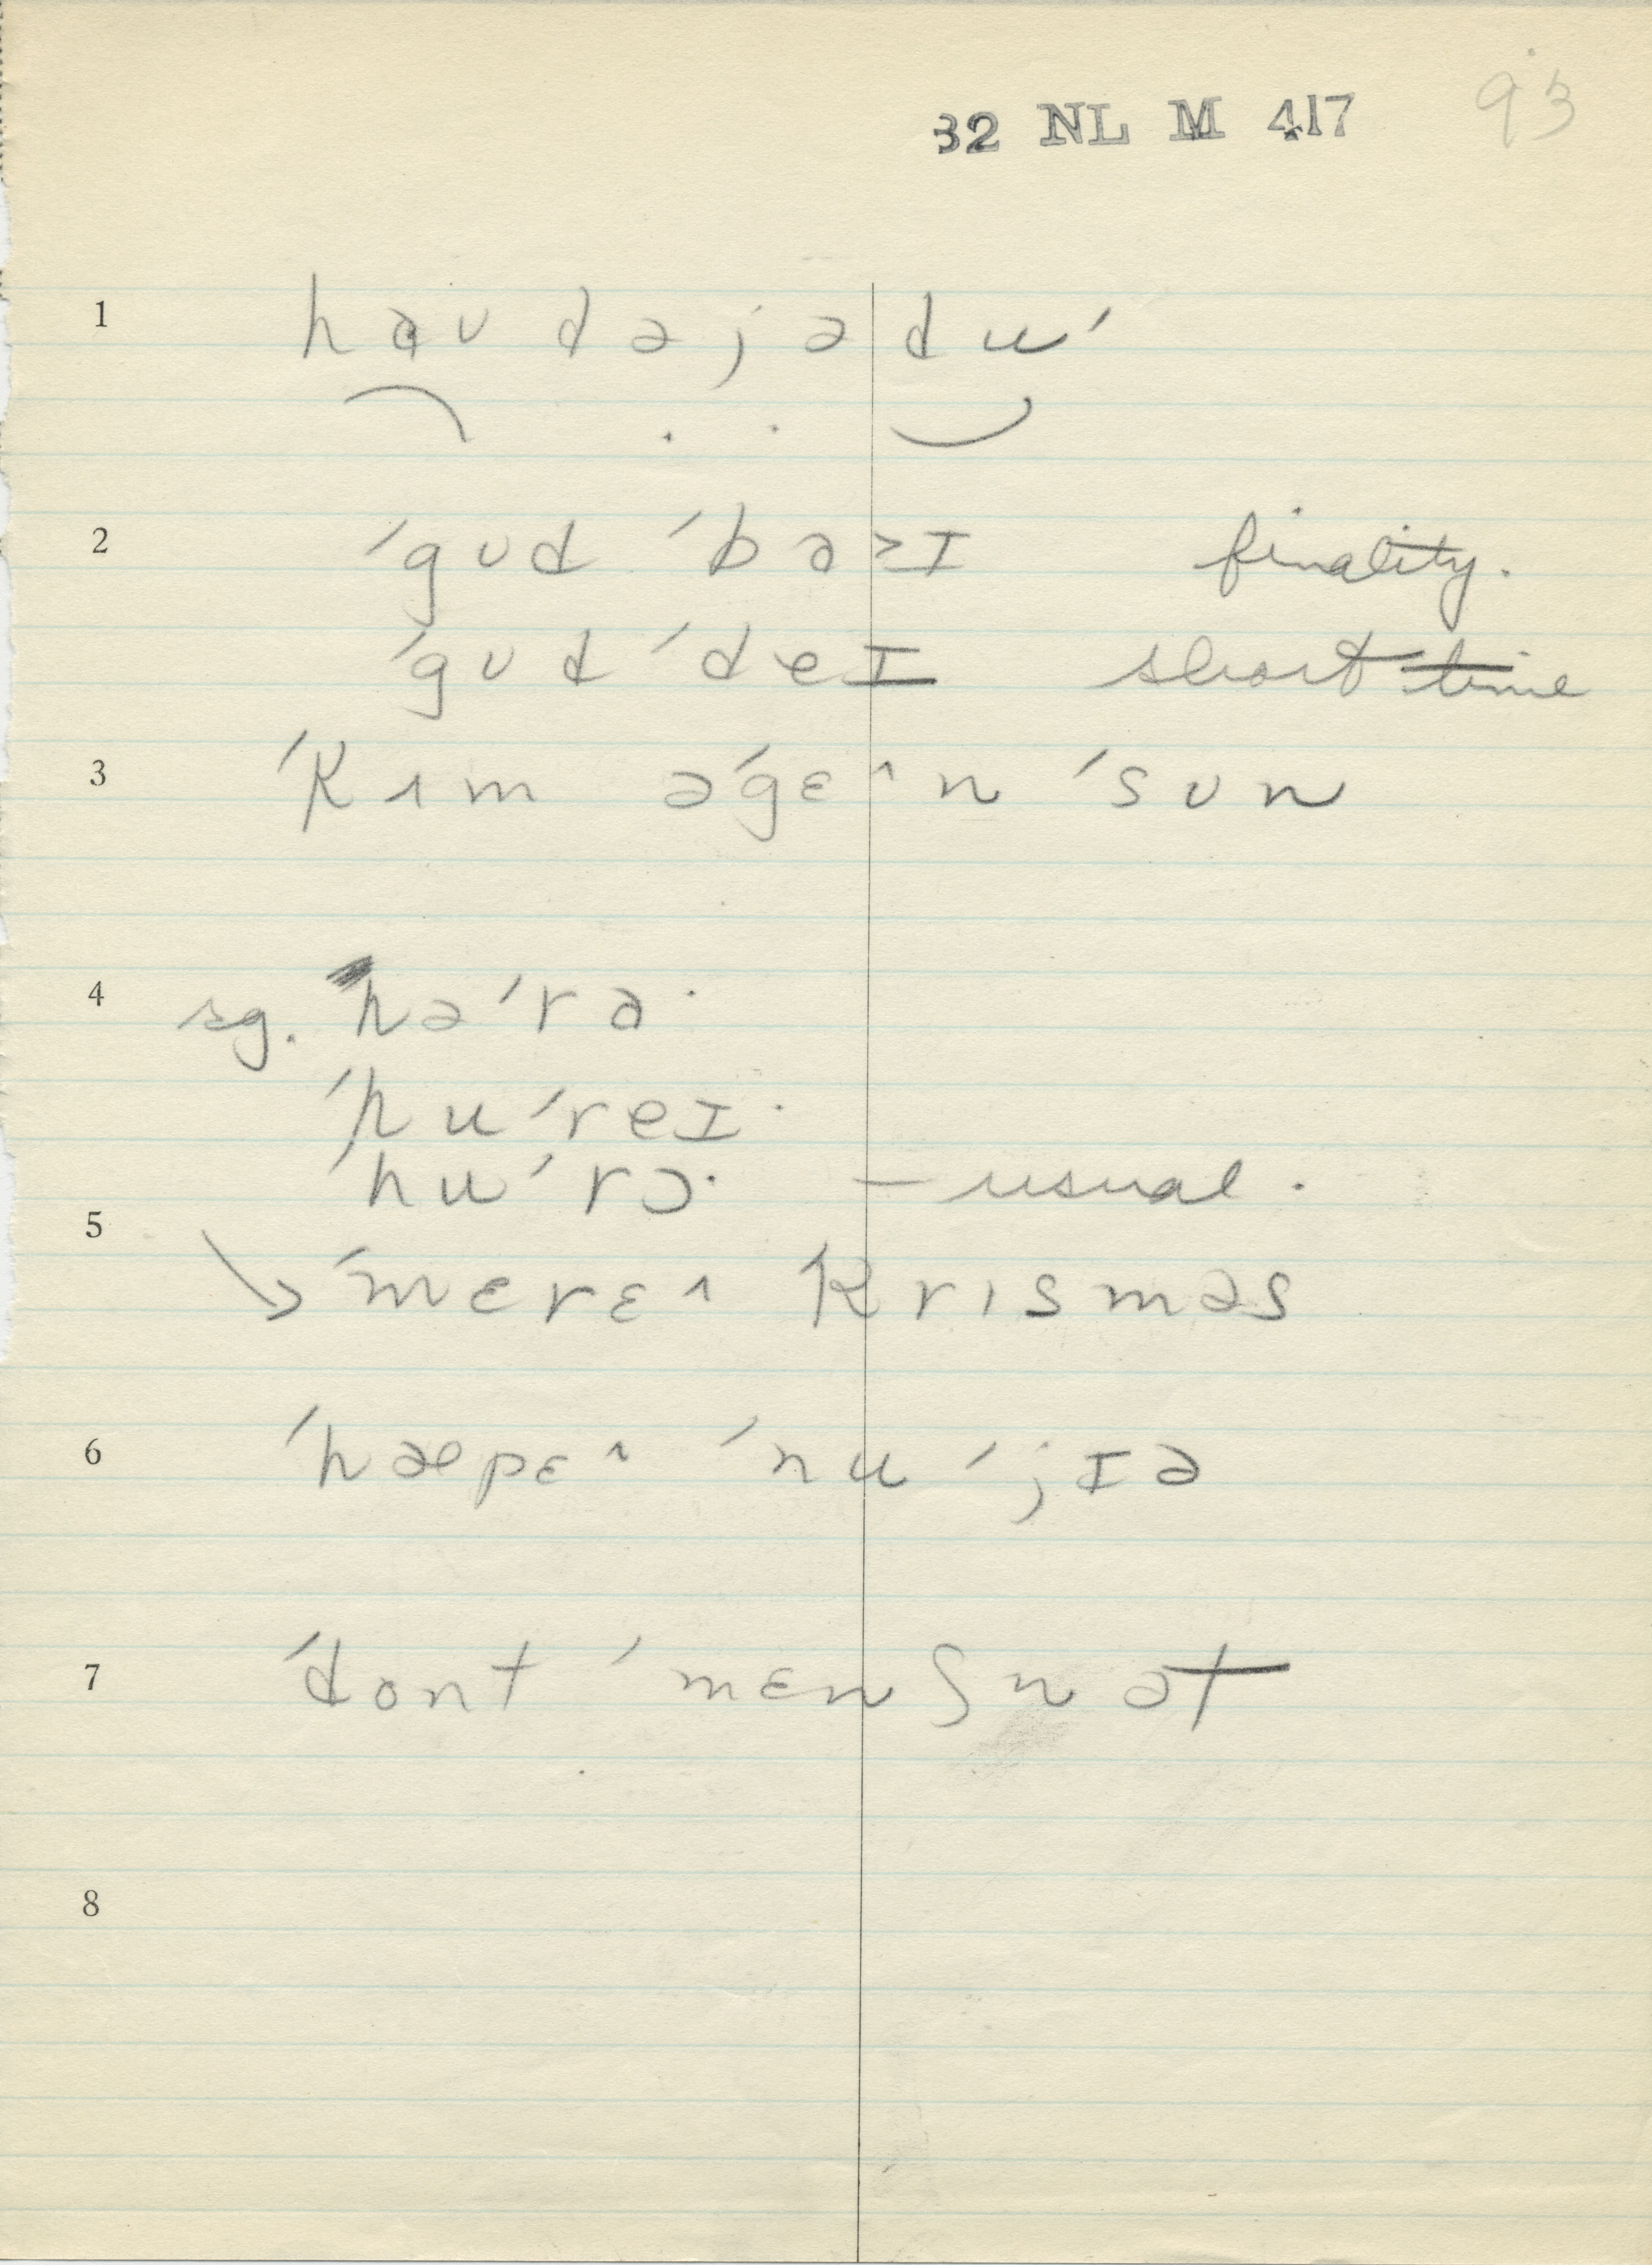 32 NL M 417 93
1 haʊ dəjə du'
2 ˈgʊd ˈbɑ>ɪ finality.
ˈgʊd ˈdeɪ short time
3 ˈkʌm əˈgɛ^n ˈsʊn
4 sg. həˈrɑ·
ˈhuˈreɪ·
ˈhuˈrɔ· – usual.
5 → ˈmɛrɛ^ krɪsməs
6 ˈhæpɛ^ ˈnu ˈjɪə
7 ˈdont ˈmɛnʃn ət
8